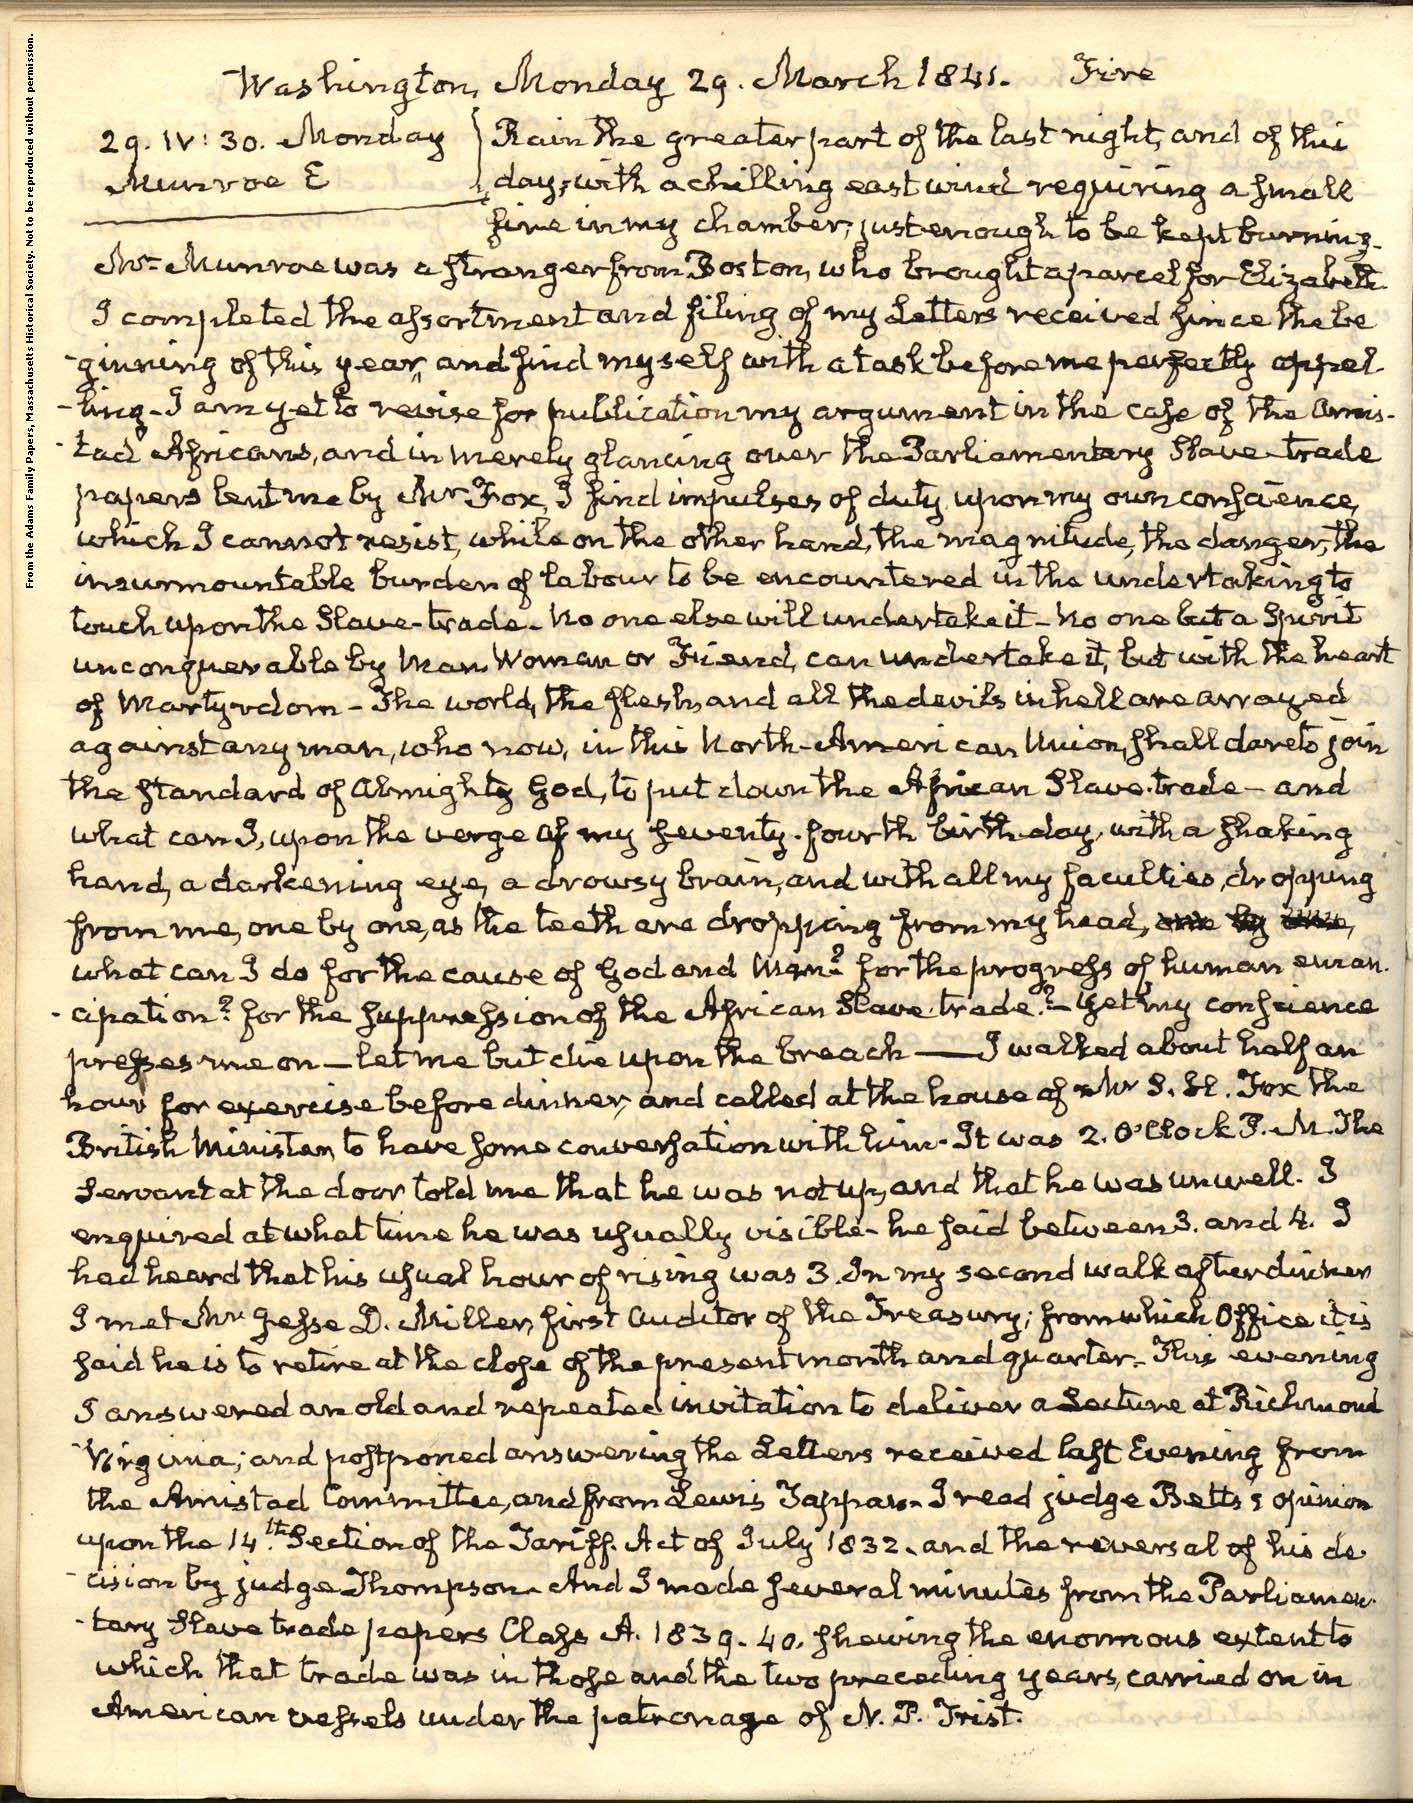 From the Adams Family Papers, Massachusetts Historical Society. Not to be reproduced without permission.
Washington, Monday 29. March 1841. Fire
29. IV: 30. Monday
Munroe E
Rain the greater part of the last night, and of this
day, with a chilling east wind requiring a small
fire in my chamber; just enough to be kept burning.
Mr. Munroe was a stranger from Boston, who brought a parcel for Elizabeth.
I completed the assortment and filing of my Letters received since the be
-ginning of this year, and find myself with a task before me perfectly appal
-ling - I am yet to revise for publication my argument in the case of the Amis-
-tad Africans, and in merely glancing over the Parliamentary Slave-trade
papers lent me by Mr Fox, I find impulses of duty upon my own conscience,
which I cannot resist, while on the other hand, the magnitude, the danger, the
insurmountable burden of labour to be encountered in the undertaking to
touch upon the Slave-trade - No one else will undertake it - No one but a Spirit
unconquerable by Man, Woman or Fiend, can undertake it, but with the heart
of Martyrdom - The world, the flesh, and all the devils in hell are arrayed
against any man, who now, in this North-American Union, shall dare to join
the standard of Almighty God, to put down the African Slave-trade - and
what can I, upon the verge of my seventy-fourth birth-day, with a shaking
hand, a darkening eye, a drowsy brain, and with all my faculties, dropping
from me, one by one, as the teeth are dropping from my head, one by one,
what can I do for the cause of God and Man? for the progress of human eman
-cipation? for the suppression of the African Slave-trade? - Yet my conscience
presses me on - let me but die upon the breach — I walked about half an
hour for exercise before dinner, and called at the house of Mr S. H. Fox the
British Minister, to have some conversation with him. It was 2. O'Clock P.M. The
Servant at the door told me that he was not up, and that he was unwell. I
enquired at what time he was usually visible - he said between 3. and 4. I
had heard that his usual hour of rising was 3. In my second walk after dinner
I met Mr Jesse D. Miller, first Auditor of the Treasury; from which Office it is
said he is to retire at the close of the present month and quarter - This evening
I answered an old and repeated invitation to deliver a Lecture at Richmond
Virginia; and postponed answering the Letters received last Evening from
the Amistad Committee, and from Lewis Tappan - I read judge Betts's opinion
upon the 14.th Section of the Tariff Act of July 1832. and the reversal of his de
-cision by judge Thompson - And I made several minutes from the Parliamen
-tary Slave trade papers Class A. 1839-40. shewing the enormous extent to
which that trade was in those and the two preceding years, carried on in
American vessels under the patronage of N. P. Trist.